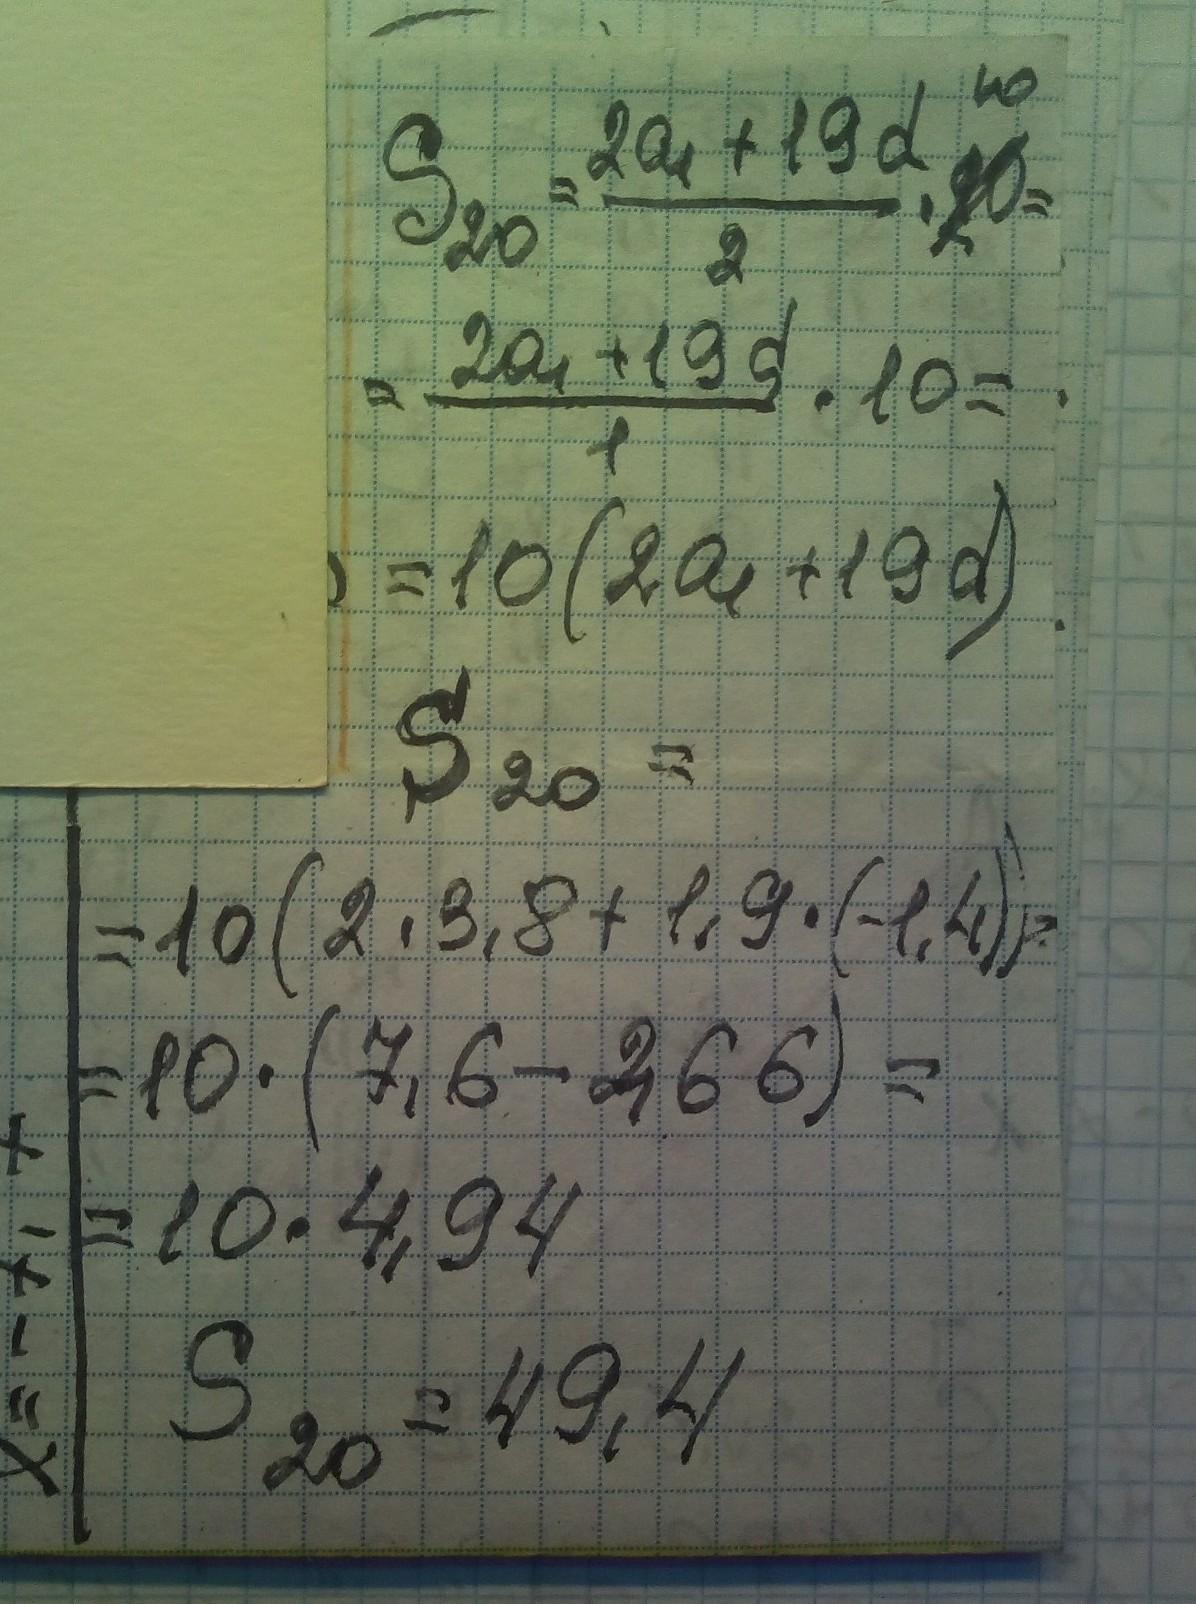 10
S₂₀ = (2a₁ + 19d)/2 · 20 =
= (2a₁ + 19d)/1 · 10 =
= 10(2a₁ + 19d).
S₂₀ =
= 10(2·3,8 + 1,9·(-1,4)) =
= 10·(7,6 - 2,66) =
= 10·4,94
S₂₀ = 49,4